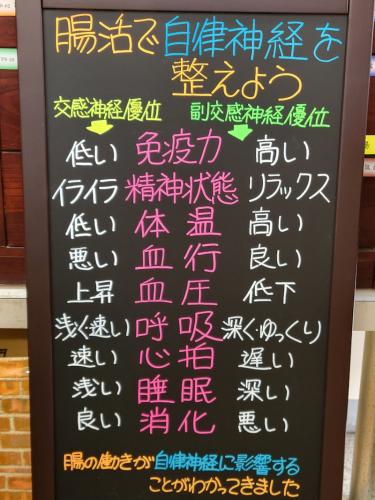 腸活で自律神経を
整えよう
交感神経優位 副交感神経優位
低い 免疫力 高い
イライラ 精神状態 リラックス
低い 体温 高い
悪い 血行 良い
上昇 血圧 低下
浅く・速い 呼吸 深く・ゆっくり
速い 心拍 遅い
浅い 睡眠 深い
良い 消化 悪い
腸の働きが自律神経に影響する
ことがわかってきました